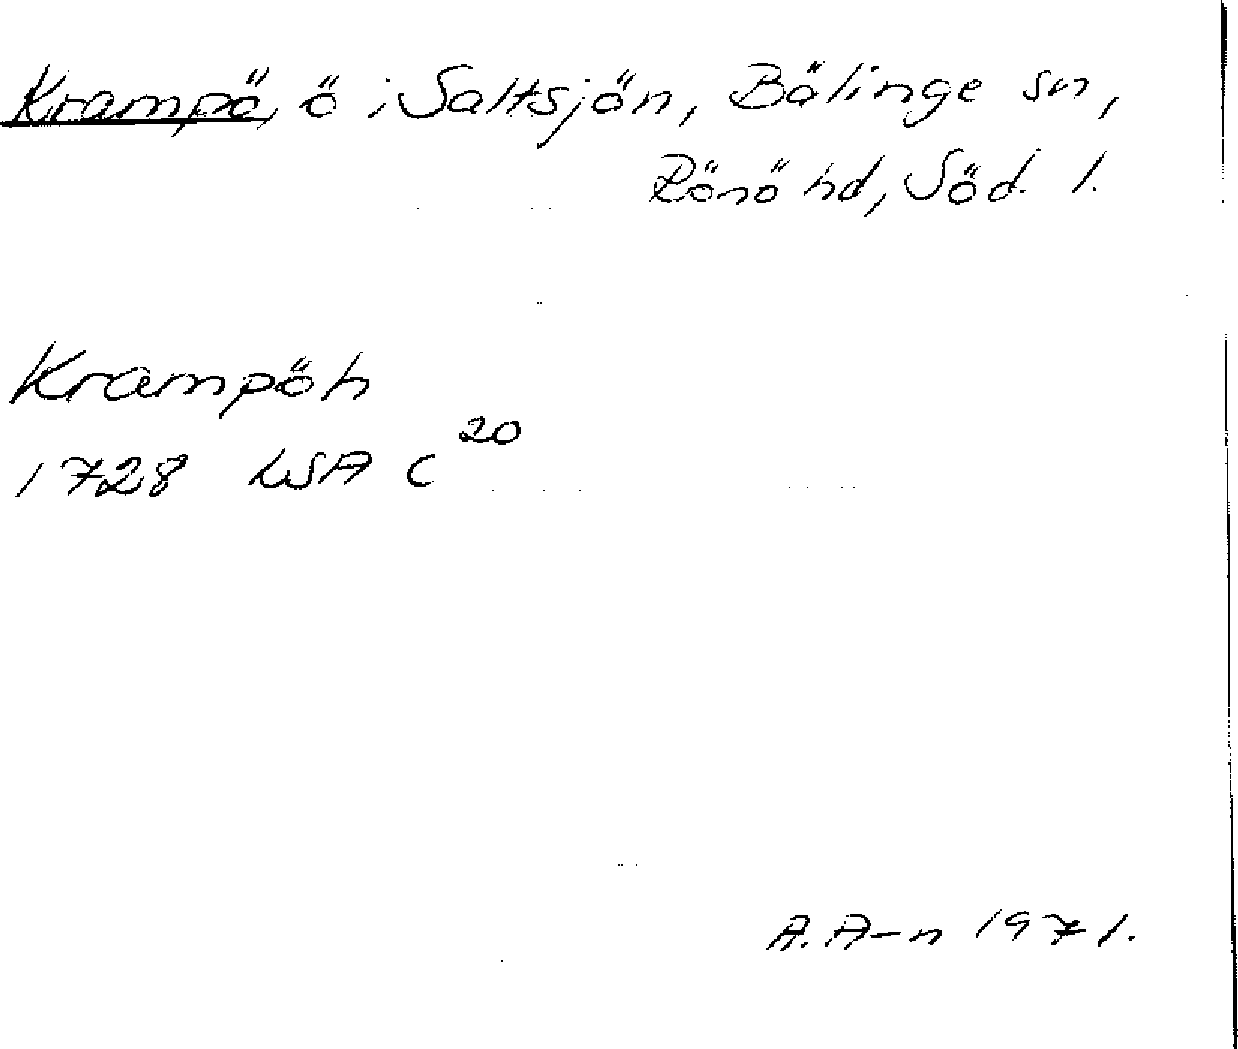 Krampö, ö i Saltsjön, Bälinge sn,
Rönö hd, Söd. l.
Krampöh
1728 LSA C 20
A. A-n 1971.